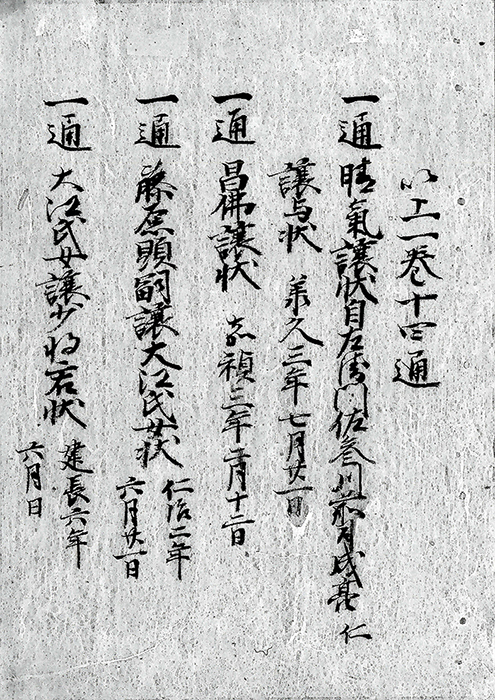 以上一巻十四通
一通 晴氣譲状自左衛門佐参川前司成亮仁
譲与状 承久三年七月廿一日
一通 昌佛譲状 嘉禎三年二月十二日
一通 藤原頼嗣譲大江氏女状 仁治二年
六月廿一日
一通 大江氏女譲少将君状 建長六年
六月日